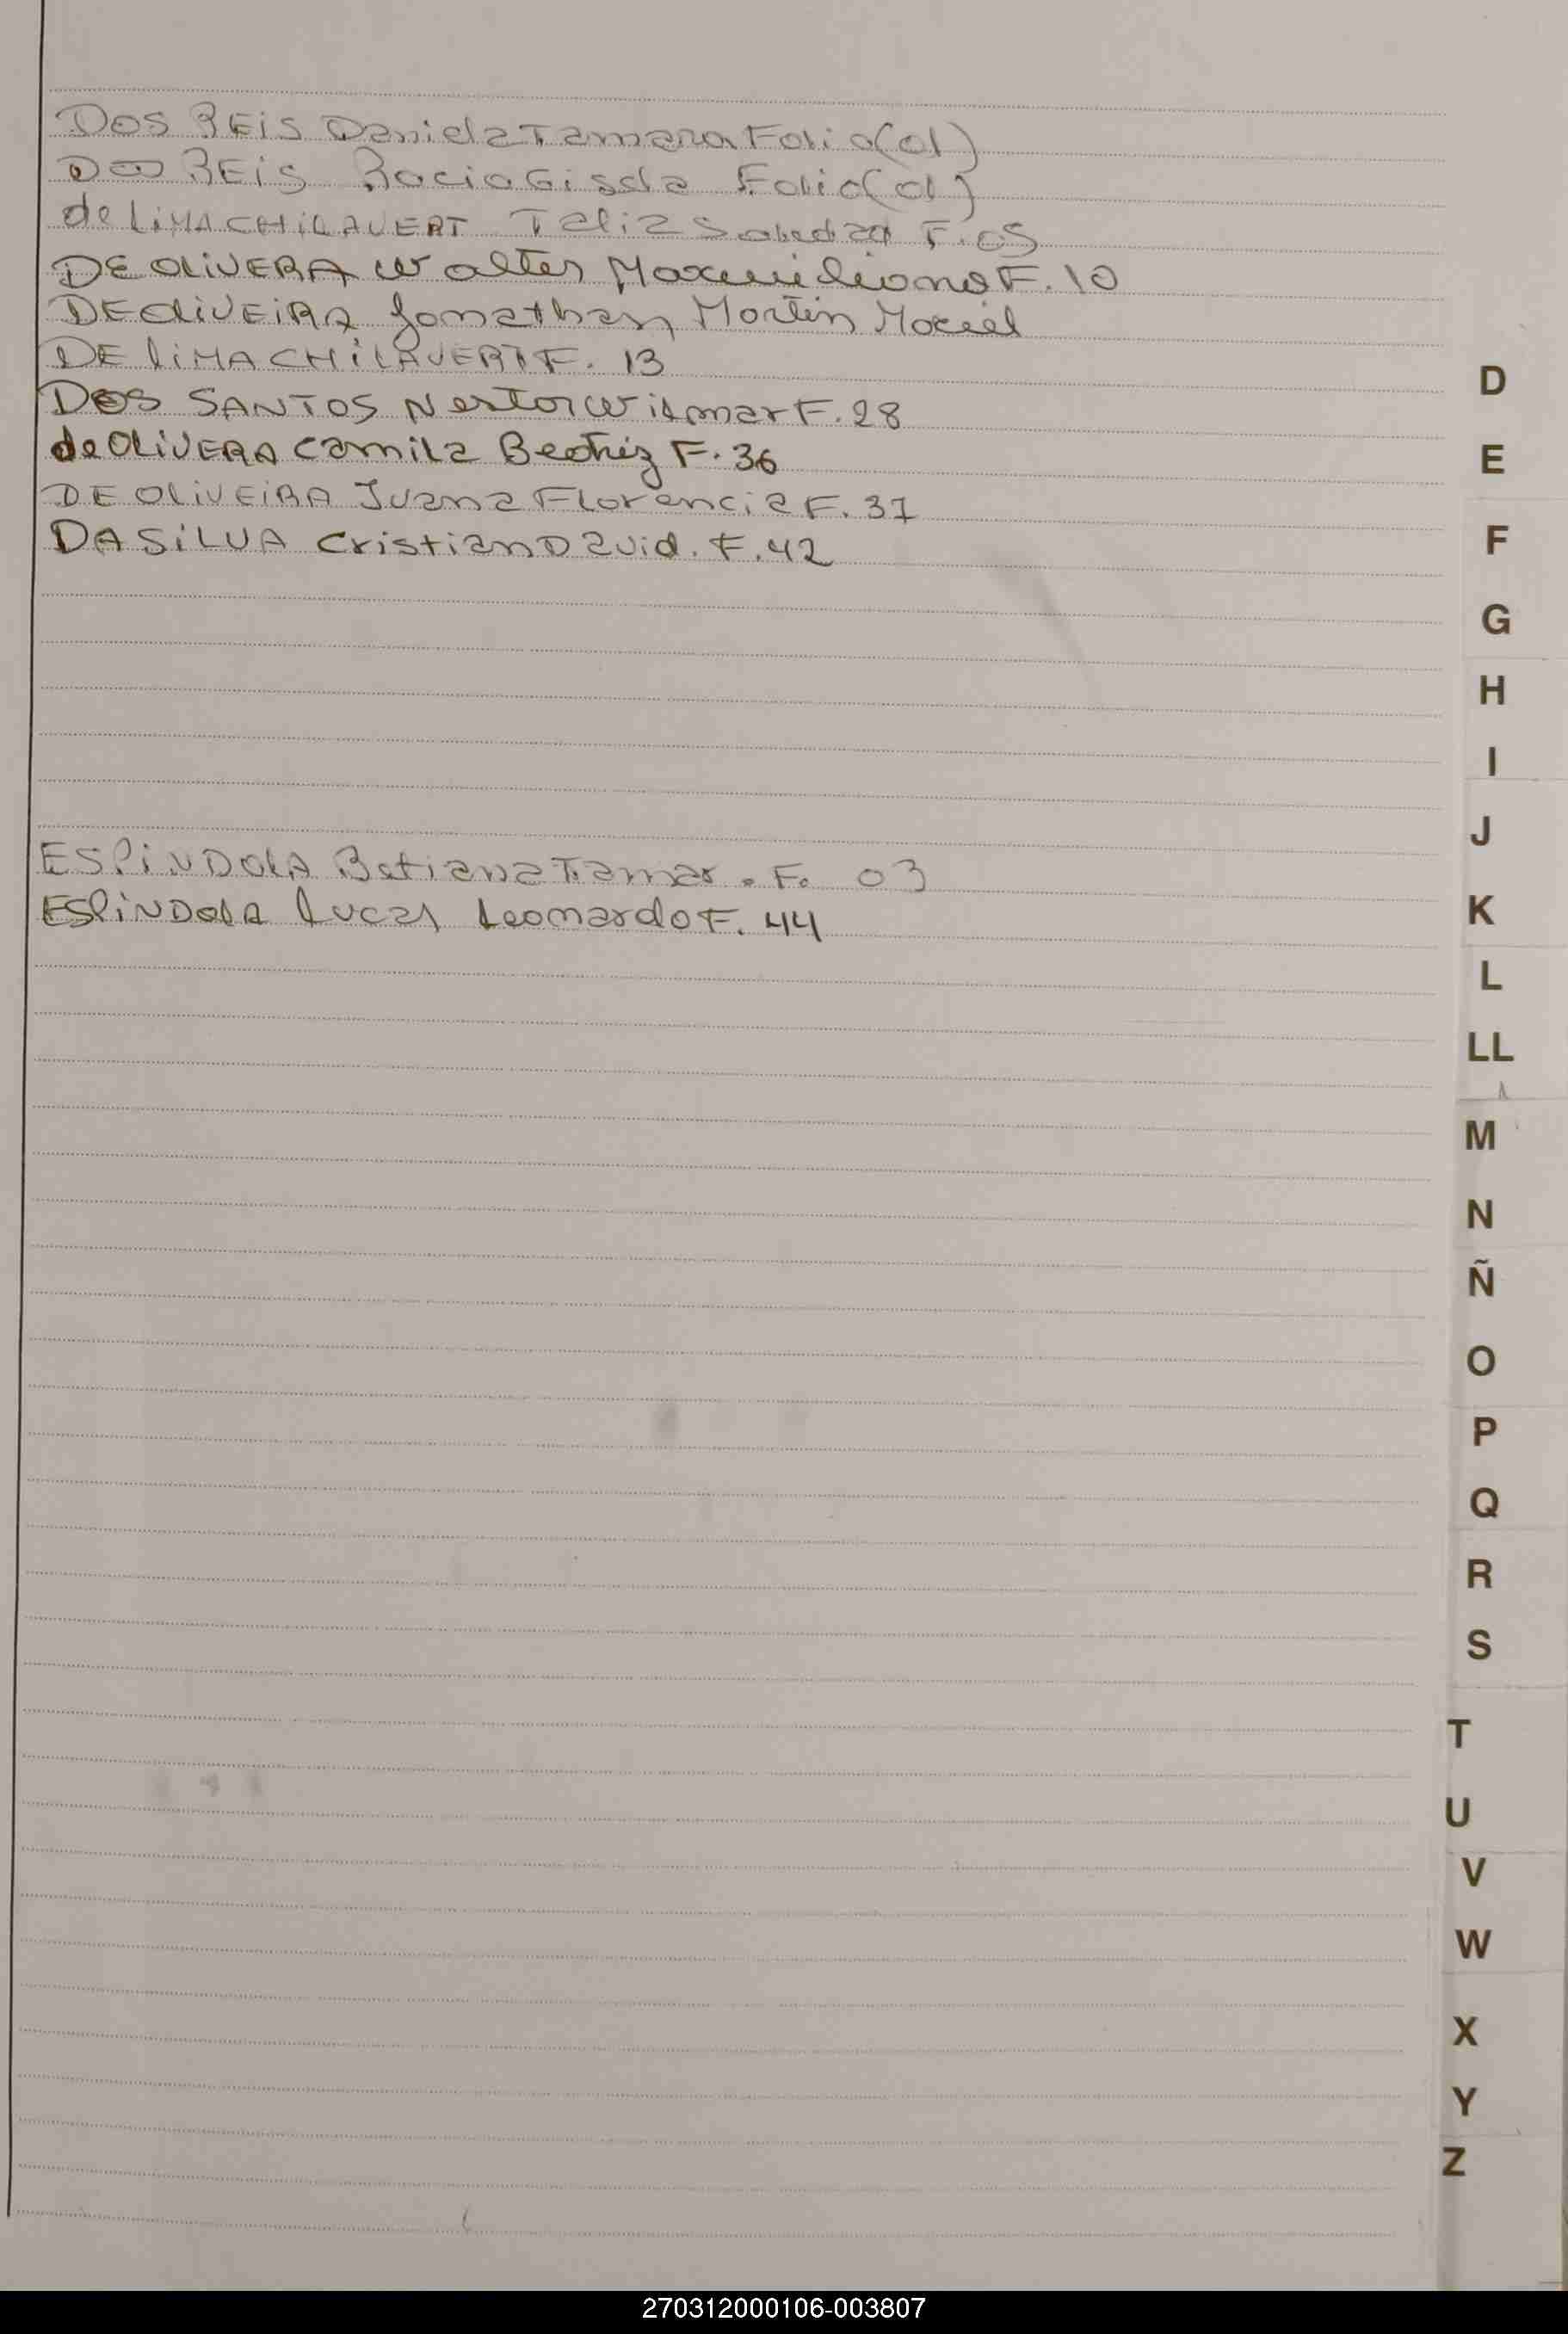 DOS REIS Daniela Tamara Folio (01)
DOS REIS Rocio Gisela Folio (01)
de LIMA CHILAVERT Taliz F. 05
DE OLIVERA Walter Maximiliano F. 10
DE OLIVEIRA Jonathan Martin Maciel
DE LIMA CHILAVERT F. 13
DOS SANTOS Nestor Wilmar F. 28
de OLIVERA Camila Beatriz F. 36
DE OLIVEIRA Juana Florencia F. 37
DA SILVA Cristian David. F. 42
ESPINDOLA Betiana Tamar. F. 03
ESPINDOLA Lucas Leonardo F. 44
D
E
F
G
H
I
J
K
L
LL
M
N
Ñ
O
P
Q
R
S
T
U
V
W
X
Y
Z
270312000106-003807